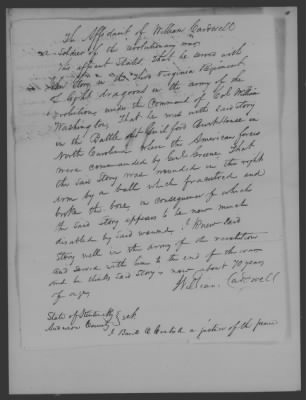 The Affidavit of William Cardwell
a Soldier of the revolutionary war
The affiant States That he served with
John Story in the Third Virginia Regiment
of light dragoons in the army of the
revolution, under the Command of Col. William
Washington, That he was with said Story
in the Battle at Guilford Courthouse in
North Carolina when the American forces
were commanded by Genl. Greene. That
the said Story was wounded in the right
arm by a ball which fractured and
broke the bone, in consequence of which
the said Story appears to be now much
disabled by said wound. I knew said
Story well in the army of the revolution
and served with him to the end of the war
and he thinks said Story is now about 70 years
of age.
William Cardwell
State of Kentucky } sct
County
a justice of the peace